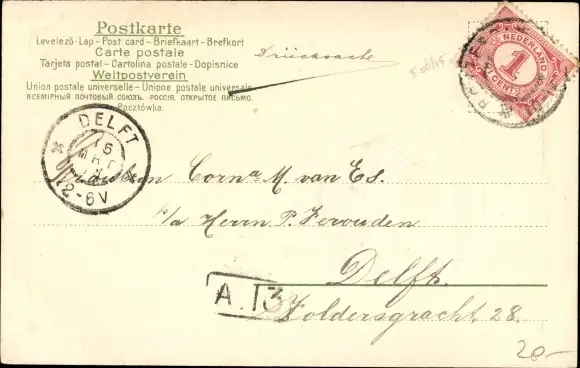 Postkarte
Levelező-Lap - Post card - Briefkaart - Brefkort
Carte postale
Tarjeta postal - Cartolina postale - Dopisnice
Weltpostverein
Union postale universelle - Unione postale universale
ВСЕМІРНЫЙ ПОЧТОВЫЙ СОЮЗЪ. РОССІЯ. ОТКРЫТОЕ ПИСЬМО.
Pocztówka
Drucksache
NEDERLAND
1
CENT
DELFT
15
MRT
12-6V
Corna M. van Es.
p/a Herrn P.
Delft.
A. 13
Koldersgracht. 28.
20.-